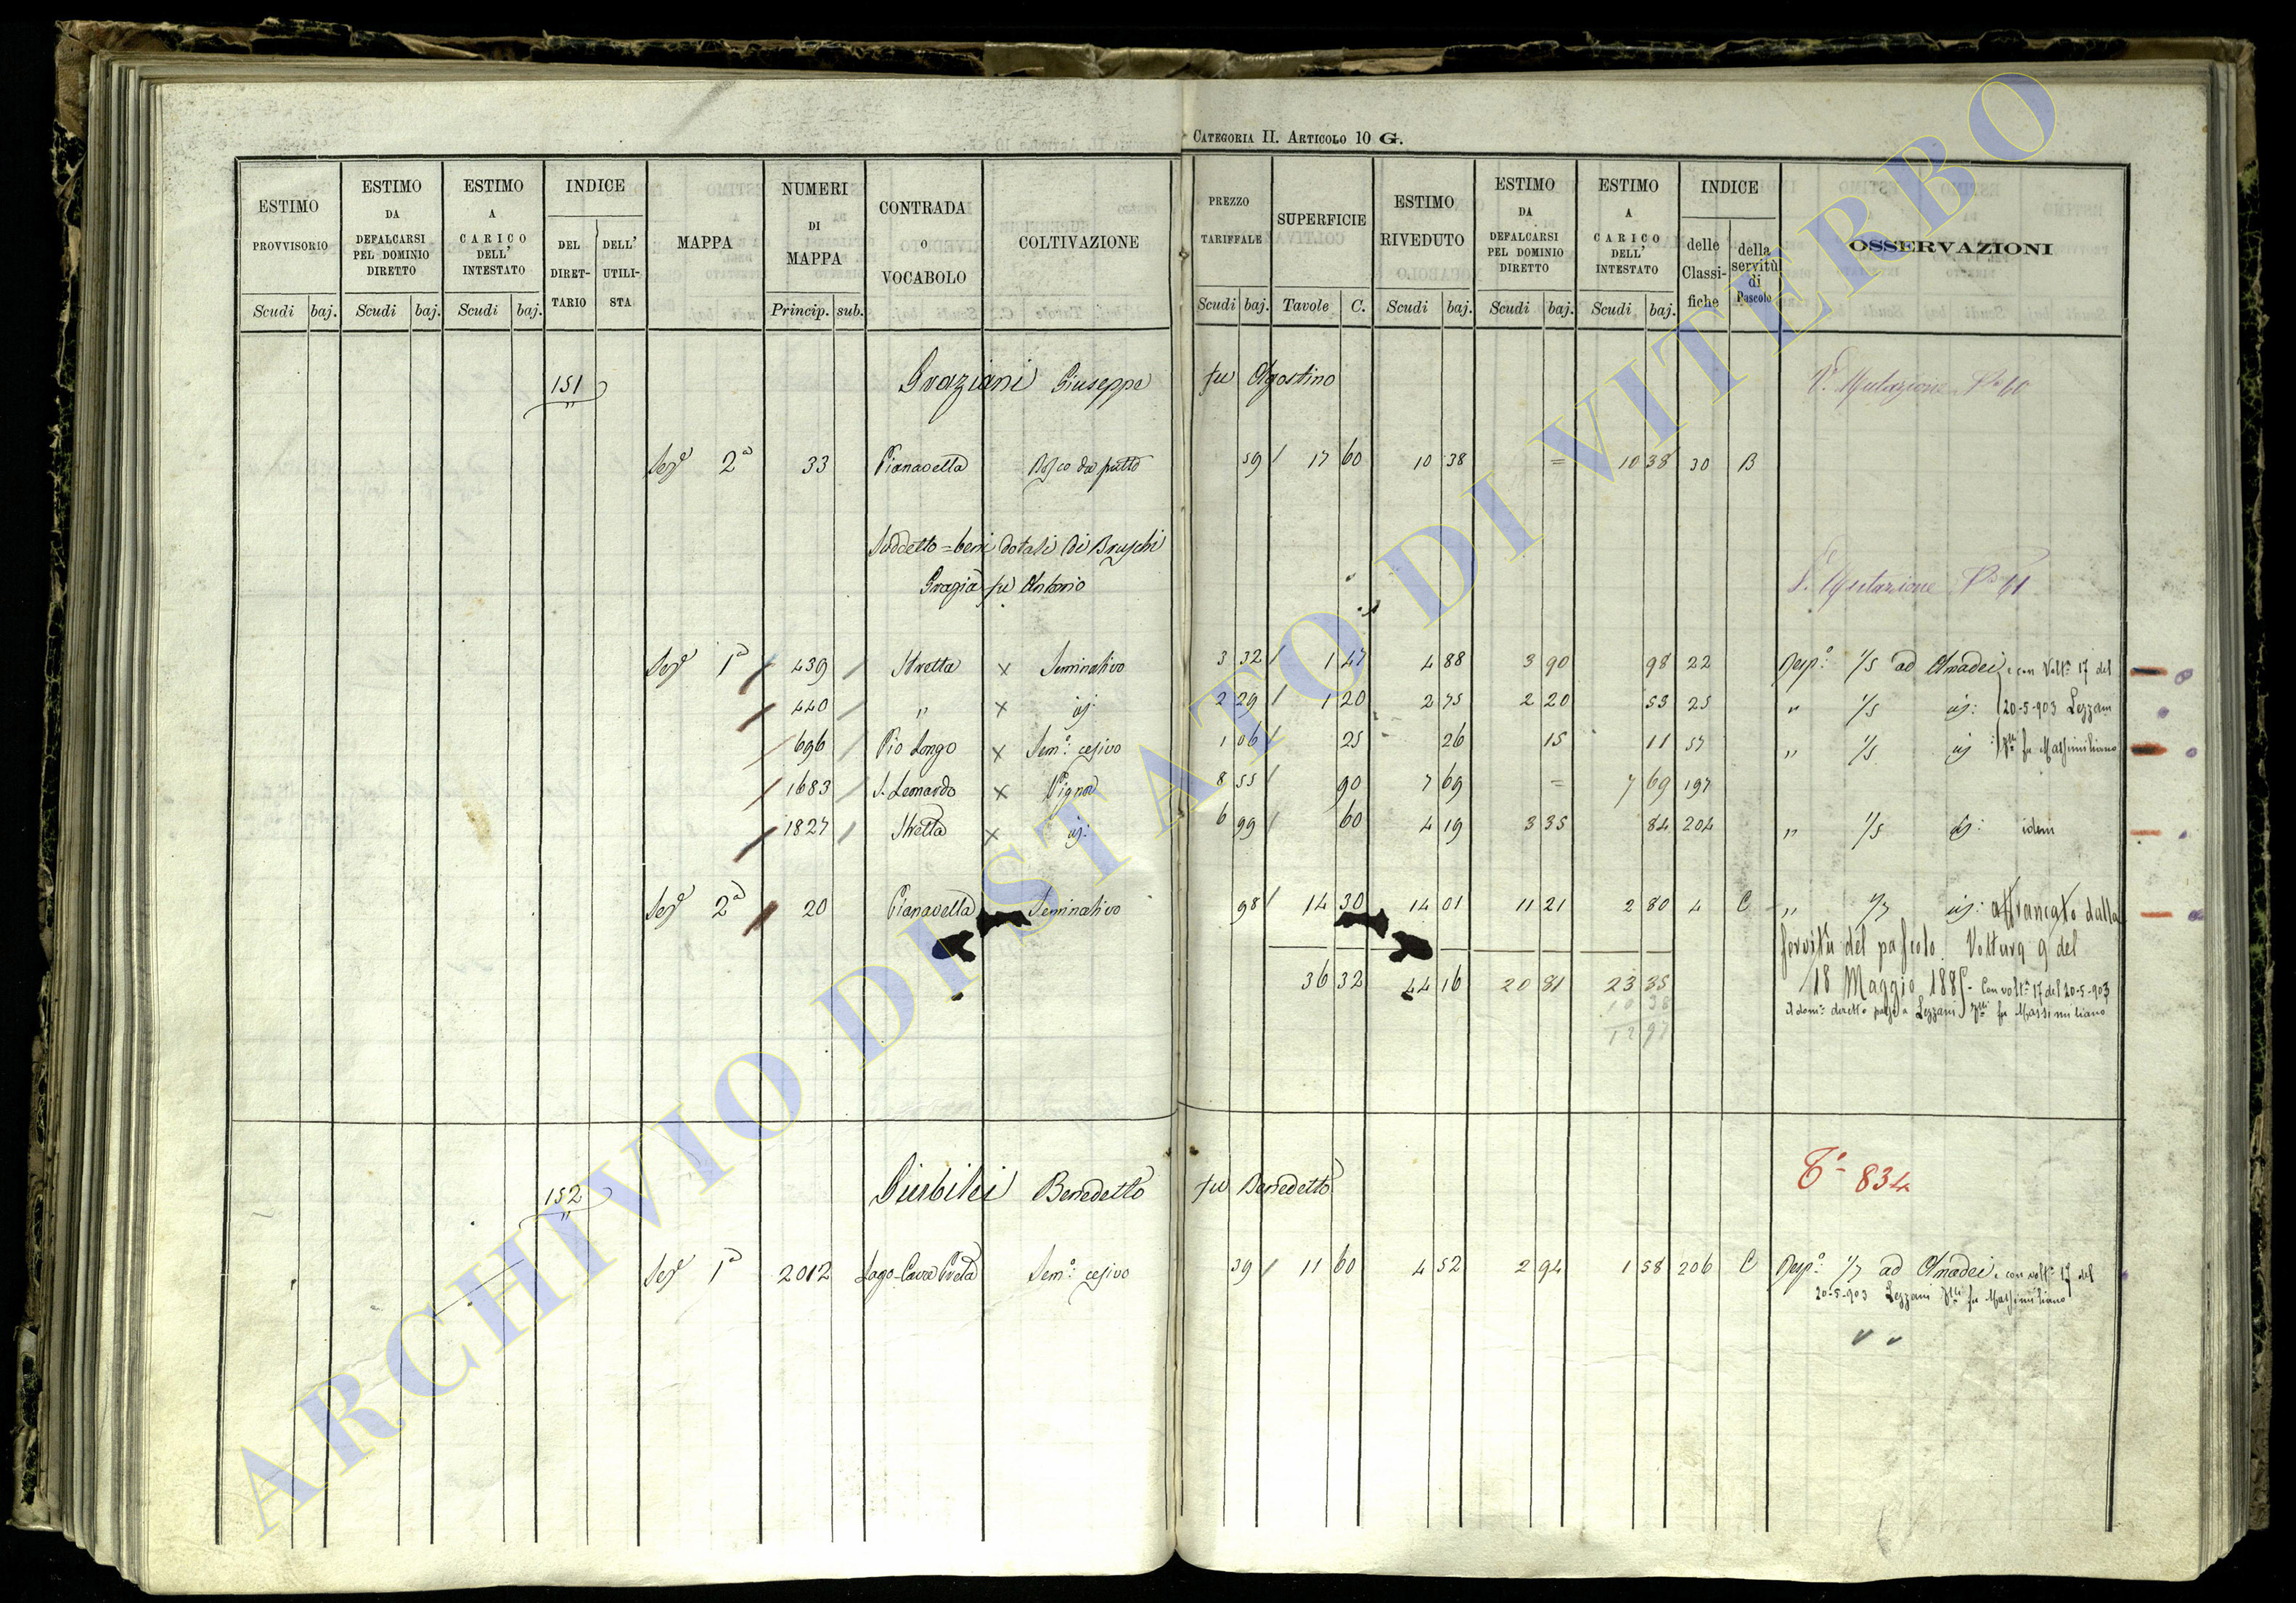 CATEGORIA II. ARTICOLO 10 G.
ESTIMO PROVVISORIO Scudi baj.
ESTIMO DA DEFALCARSI PEL DOMINIO DIRETTO Scudi baj.
ESTIMO A CARICO DELL' INTESTATO Scudi baj.
INDICE DEL DIRETTARIO DELL' UTILISTA
MAPPA
NUMERI DI MAPPA Princip. sub.
CONTRADA O VOCABOLO
COLTIVAZIONE
PREZZO TARIFFALE Scudi baj.
SUPERFICIE Tavole C.
ESTIMO RIVEDUTO Scudi baj.
ESTIMO DA DEFALCARSI PEL DOMINIO DIRETTO Scudi baj.
ESTIMO A CARICO DELL' INTESTATO Scudi baj.
INDICE delle Classifiche della servitù di Pascolo
OSSERVAZIONI
151 Graziani Giuseppe fu Agostino V. Mutazione No 60
Seze 2a 33 Pianavella Bosco da frutto 59 17 60 10 38 = 10 38 30 B
Suddetto = beni dotali di Bruschi
Grazia fu Antonio V. Mutazione No 61
Seze 1a 439 Stretta x Seminativo 3 32 1 47 4 88 3 90 98 22 Rispa: 1/5 ad Amadei e con Volta 17 del
440 " x id: 2 29 1 20 2 75 2 20 53 25 " 1/5 id: 20-5-903 Lezzani
696 Pio Longo x Semo: cesivo 1 06 25 26 15 11 57 " 1/5 id: flli fu Massimiliano
1683 S. Leonardo x Vigna 8 55 90 7 69 = 7 69 197
1827 Stretta x id: 6 99 60 4 19 3 35 84 204 " 1/5 id: idem
Seze 2a 20 Pianavella Seminativo 98 14 30 14 01 11 21 2 80 4 C " 1/7 id: affrancato dalla
servitù del pascolo. Voltura 9 del
36 32 44 16 20 81 23 35 18 Maggio 188 - Con volta 17 del 20-5-903
10 38 il domo diretto passa a Lezzani flli fu Massimiliano
12 97
152 Giurbilei Benedetto fu Benedetto To 834
Seze 1a 2012 Lago-Cava Preta Semo: cesivo 39 11 60 4 52 2 94 1 58 206 C Rispa: 1/7 ad Amadei e con volta 17 del
20-5-903 Lezzani flli fu Massimiliano
ARCHIVIO DI STATO DI VITERBO